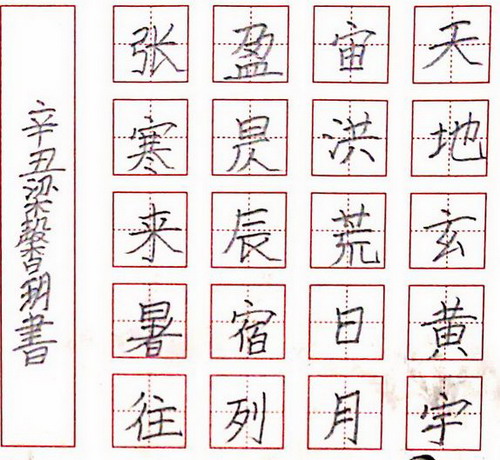 天地玄黄宇
宙洪荒日月
盈昃辰宿列
张寒来暑往
辛丑梁馨玥書